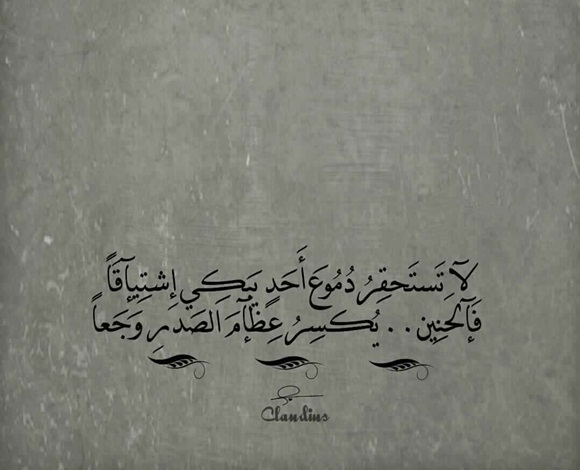 لآ تَستَحقِرُ دُمُوعَ أَحَدٍ يَبكِي إشتِيآقاً
فَآلحَنِين . . يُكسِرُ عِظَآمَ الصَدرِ وَجَعاً
Claudius